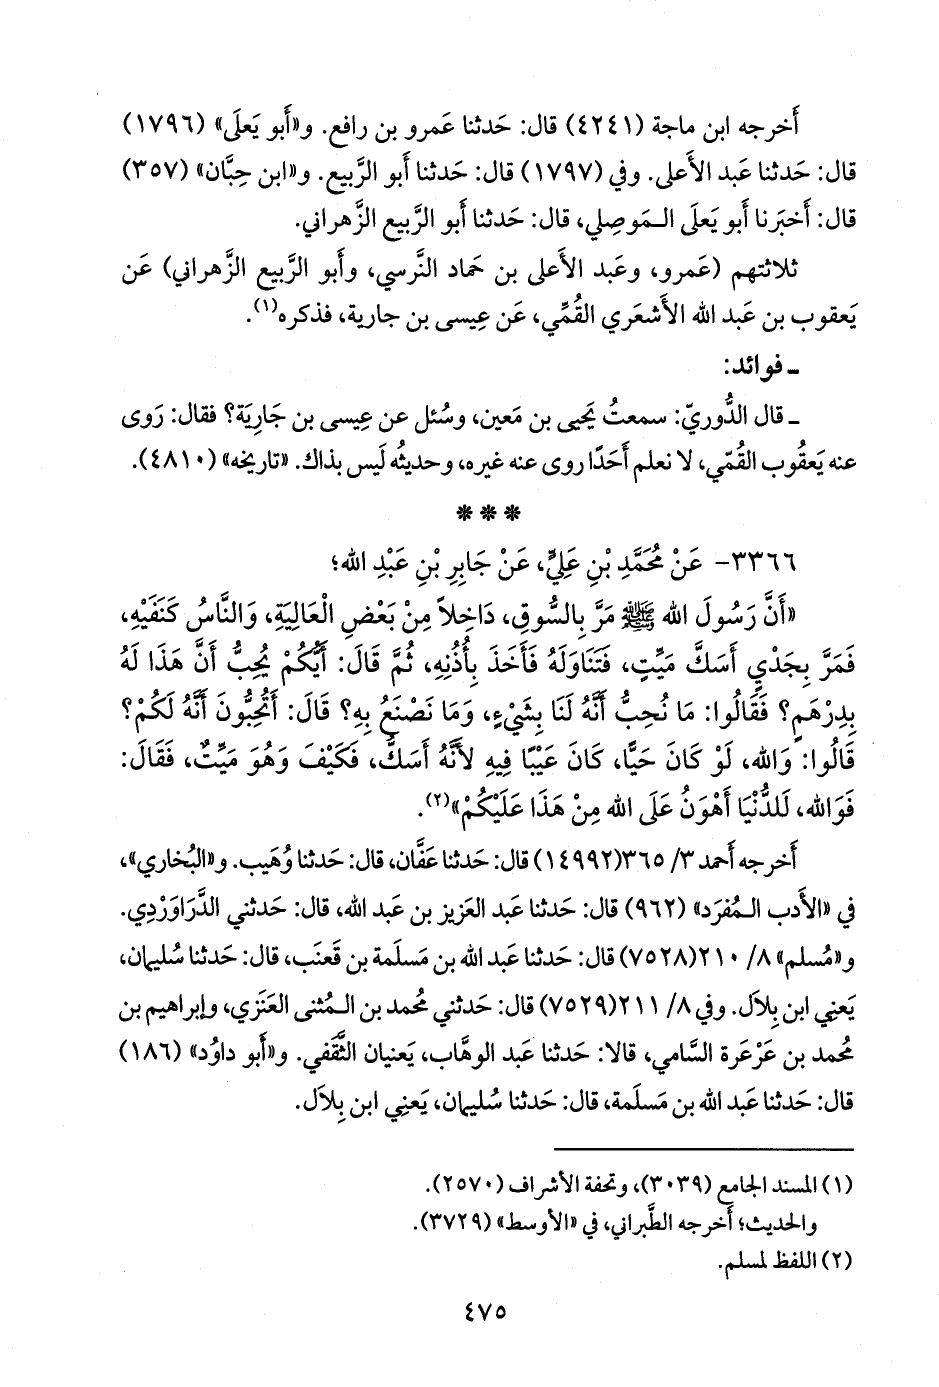 أَخرجه ابن ماجة (٤٢٤١) قال: حَدثنا عَمرو بن رافع. و«أَبو يَعلَى» (١٧٩٦)
قال: حَدثنا عَبد الأَعلى. وفي (١٧٩٧) قال: حَدثنا أَبو الرَّبيع. و«ابن حِبَّان» (٣٥٧)
قال: أَخبَرنا أَبو يَعلَى الـمَوصِلي، قال: حَدثنا أَبو الرَّبيع الزَّهراني.
ثلاثتهم (عَمرو، وعَبد الأَعلى بن حَماد النَّرسي، وأَبو الرَّبيع الزَّهراني) عَن
يَعقوب بن عَبد الله الأَشعَري القُمِّي، عَن عِيسى بن جارية، فذكره(١).
ـ فوائد:
ـ قال الدُّوريّ: سمعتُ يَحيى بن مَعين، وسُئل عن عِيسى بن جَارِيَة؟ فقال: رَوى
عنه يَعقُوب القُمّي، لا نعلم أَحَدًا روى عنه غيره، وحديثُه لَيس بذاك. «تاريخه» (٤٨١٠).
* * *
٣٣٦٦- عَنْ مُحَمَّدِ بْنِ عَلِيٍّ، عَنْ جَابِرِ بْنِ عَبْدِ الله؛
«أَنَّ رَسُولَ الله ﷺ مَرَّ بِالسُّوقِ، دَاخِلاً مِنْ بَعْضِ الْعَالِيَةِ، وَالنَّاسُ كَنَفَيْهِ،
فَمَرَّ بِجَدْيٍ أَسَكَّ مَيِّتٍ، فَتَنَاوَلَهُ فَأَخَذَ بِأُذُنِهِ، ثُمَّ قَالَ: أَيُّكُمْ يُحِبُّ أَنَّ هَذَا لَهُ
بِدِرْهَمٍ؟ فَقَالُوا: مَا نُحِبُّ أَنَّهُ لَنَا بِشَيْءٍ، وَمَا نَصْنَعُ بِهِ؟ قَالَ: أَتُحِبُّونَ أَنَّهُ لَكُمْ؟
قَالُوا: وَالله، لَوْ كَانَ حَيًّا، كَانَ عَيْبًا فِيهِ لأَنَّهُ أَسَكُّ، فَكَيْفَ وَهُوَ مَيِّتٌ، فَقَالَ:
فَوَالله، لَلدُّنْيَا أَهْوَنُ عَلَى الله مِنْ هَذَا عَلَيْكُمْ»(٢).
أَخرجه أَحمد ٣/ ٣٦٥(١٤٩٩٢) قال: حَدثنا عَفَّان، قال: حَدثنا وُهَيب. و«البُخاري»،
في «الأَدب الـمُفرَد» (٩٦٢) قال: حَدثنا عَبد العَزيز بن عَبد الله، قال: حَدثني الدَّرَاوَرْدِي.
و«مُسلم» ٨/ ٢١٠(٧٥٢٨) قال: حَدثنا عَبد الله بن مَسلَمة بن قَعنَب، قال: حَدثنا سُليمان،
يَعني ابن بِلاَل. وفي ٨/ ٢١١(٧٥٢٩) قال: حَدثني مُحمد بن الـمُثنى العَنَزي، وإبراهيم بن
مُحمد بن عَرْعَرة السَّامي، قالا: حَدثنا عَبد الوهَّاب، يَعنيان الثَّقَفي. و«أَبو داوُد» (١٨٦)
قال: حَدثنا عَبد الله بن مَسلَمة، قال: حَدثنا سُليمان، يَعنِي ابن بِلاَل.
(١) المسند الجامع (٣٠٣٩)، وتحفة الأشراف (٢٥٧٠).
والحديث؛ أَخرجه الطَّبراني، في «الأوسط» (٣٧٢٩).
(٢) اللفظ لمسلم.
٤٧٥